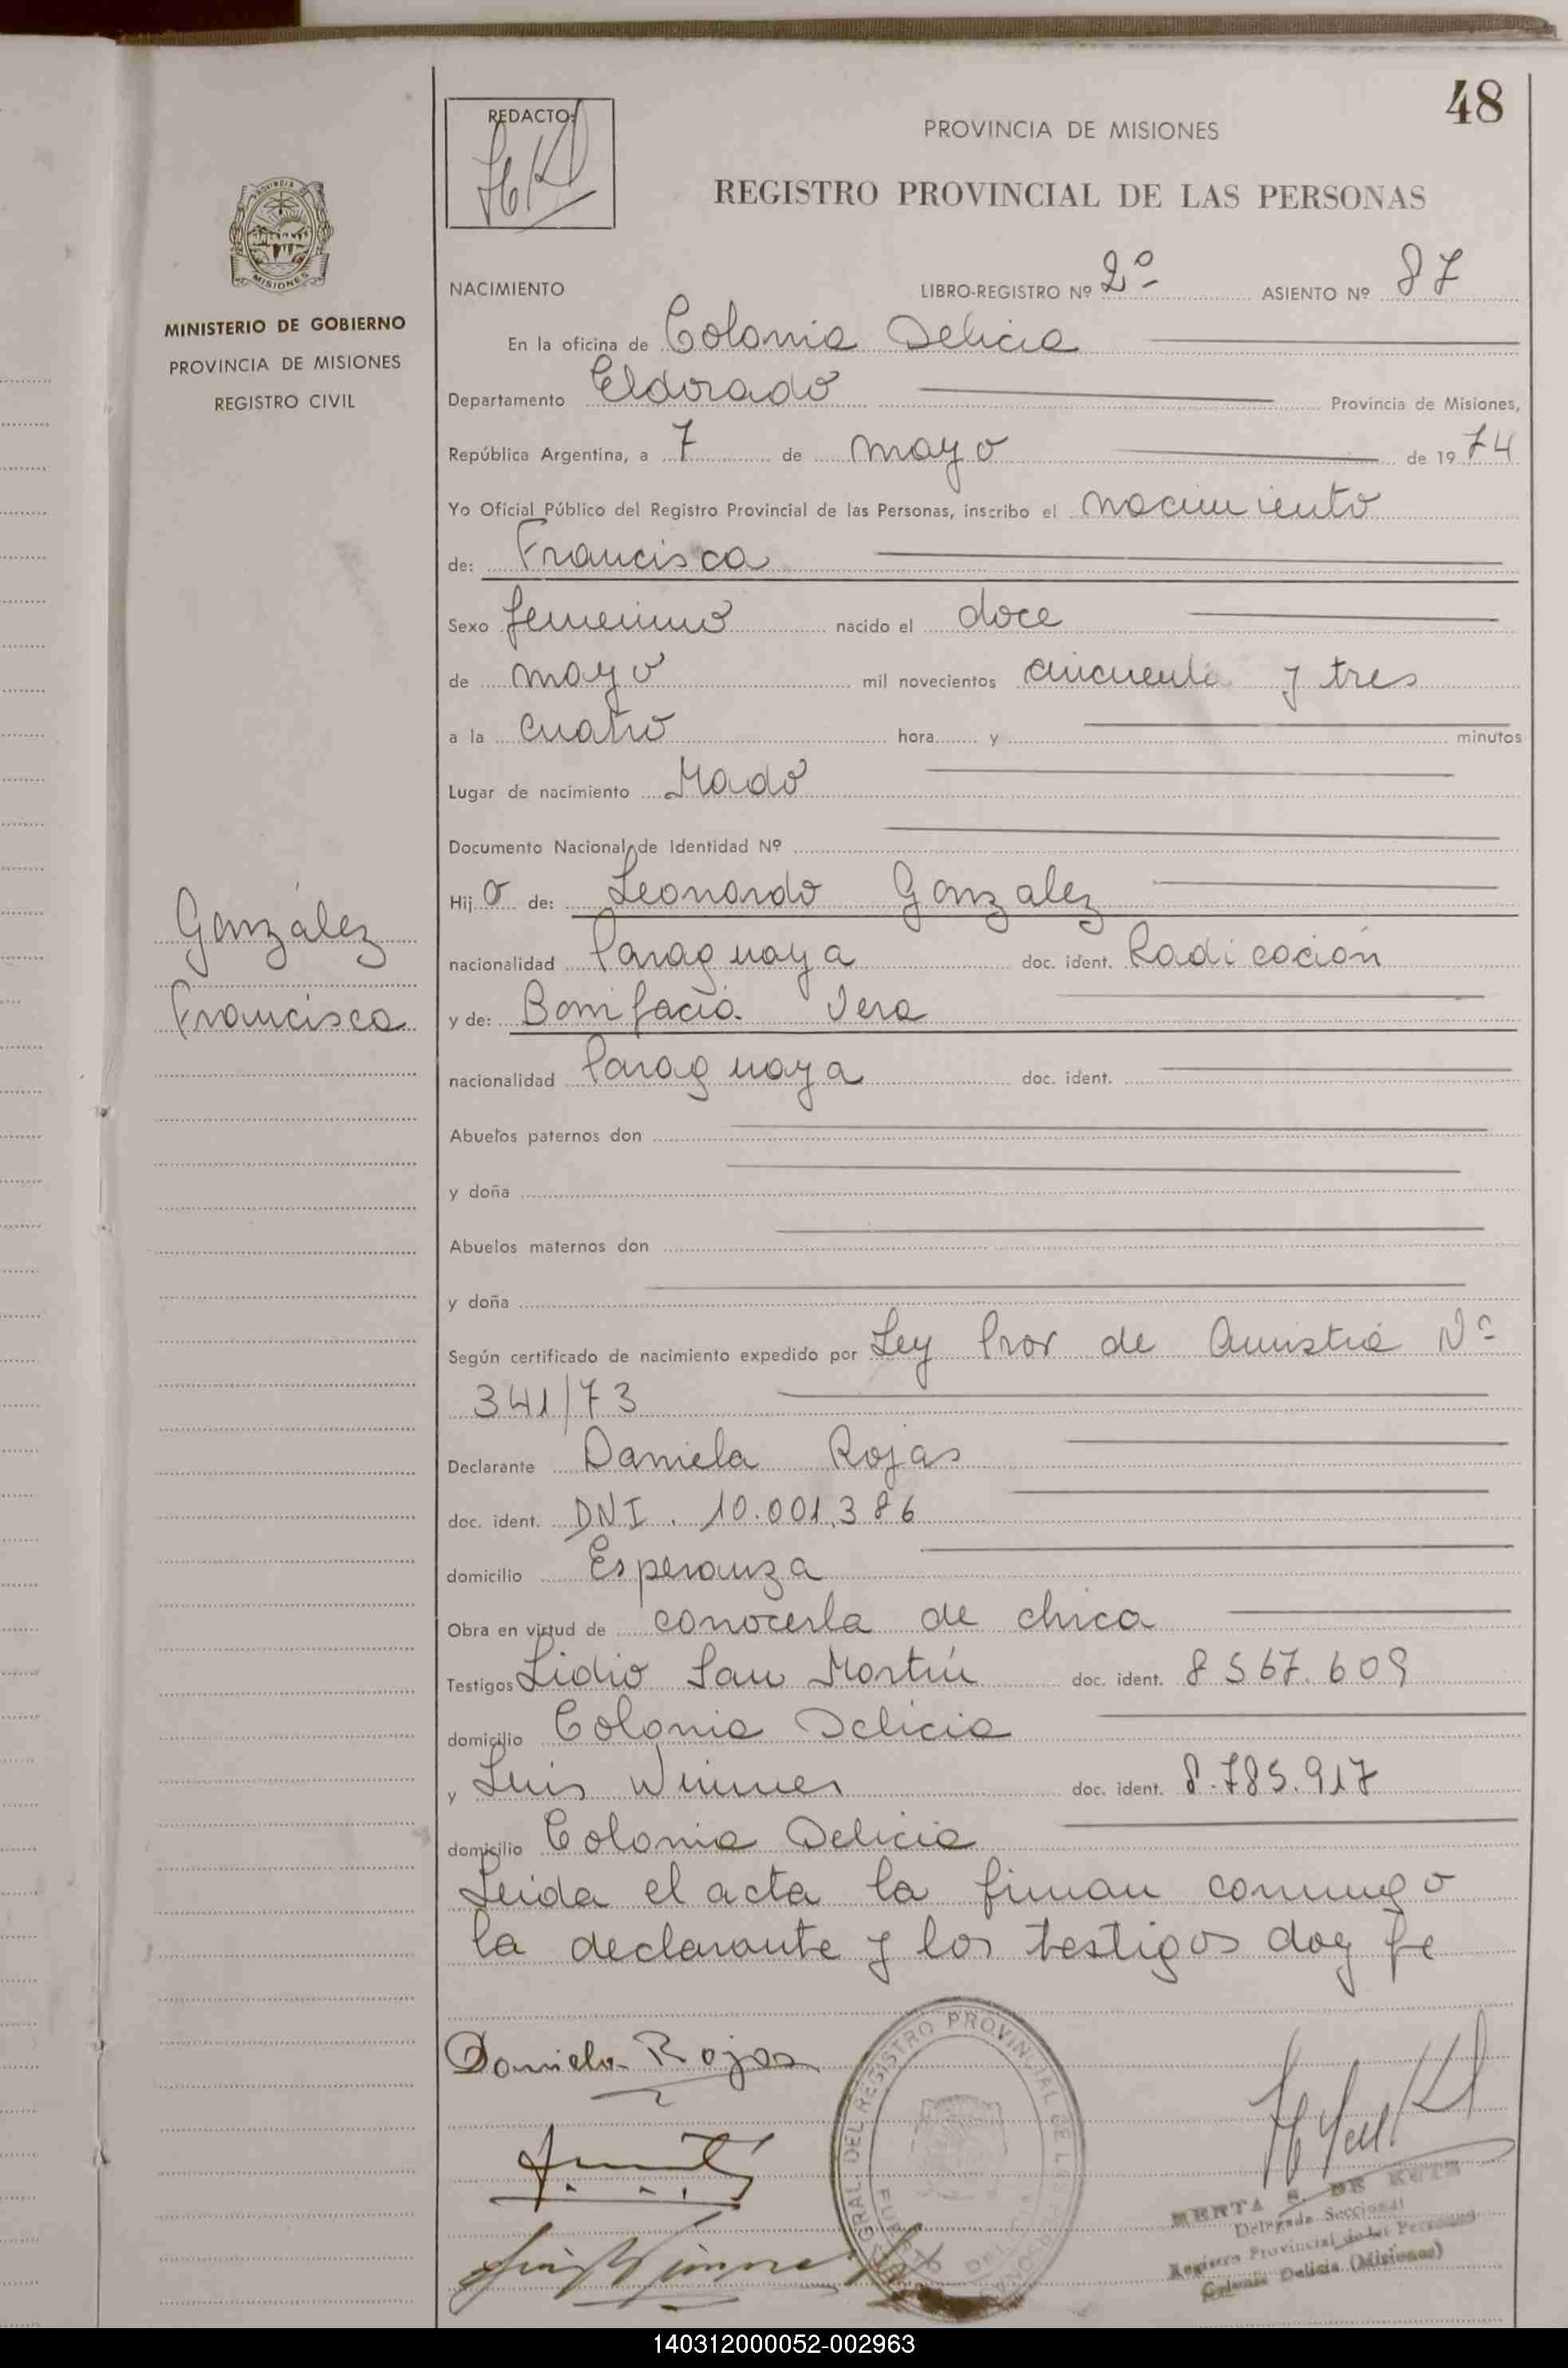 48
REDACTO:
PROVINCIA DE MISIONES
REGISTRO PROVINCIAL DE LAS PERSONAS
PROVINCIA DE
MISIONES
MINISTERIO DE GOBIERNO
PROVINCIA DE MISIONES
REGISTRO CIVIL
NACIMIENTO LIBRO-REGISTRO Nº 2º ASIENTO Nº 87
En la oficina de Colonia Delicia
Departamento Eldorado Provincia de Misiones,
República Argentina, a 7 de mayo de 1974
Yo Oficial Público del Registro Provincial de las Personas, inscribo el nacimiento
de: Francisca
Sexo femenino nacido el doce
de mayo mil novecientos cincuenta y tres
a la cuatro hora y minutos
Lugar de nacimiento Mado
Documento Nacional de Identidad Nº
Hijo de: Leonardo Gonzalez
González
nacionalidad Paraguaya doc. ident. Radicación
Francisca
y de: Bonifacia Vera
nacionalidad Paraguaya doc. ident.
Abuelos paternos don
y doña
Abuelos maternos don
y doña
Según certificado de nacimiento expedido por Ley Prov de Amnistia Nº
341/73
Declarante Daniela Rojas
doc. ident. DNI. 10.001.386
domicilio Esperanza
Obra en virtud de conocerla de chica
Testigos Lidio San Martín doc. ident. 8567.609
domicilio Colonia Delicia
y Luis Winner doc. ident. 8.785.917
domicilio Colonia Delicia
Leida el acta la firman conmigo
la declarante y los testigos doy fe
Daniela Rojas
GRAL. DEL REGISTRO PROVINCIAL DE LAS PERSONAS
Delegada Seccional
Registro Provincial de las Personas
Colonia Delicia (Misiones)
140312000052-002963